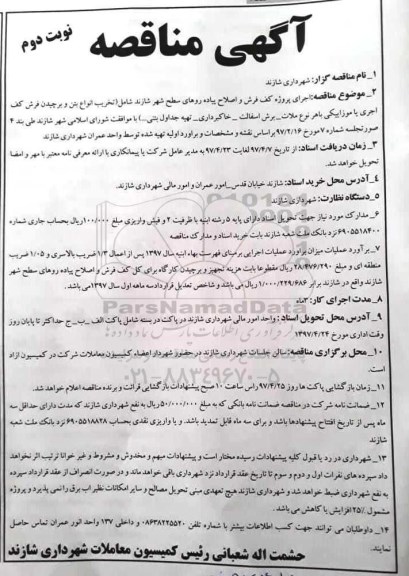 آگهی مناقصه
نوبت دوم
۱_نام مناقصه گزار: شهرداری شازند
۲_موضوع مناقصه: اجرای پروژه کف فرش و اصلاح پیاده روهای سطح شهر شازند شامل(تخریب انواع بتن و برچیدن فرش کف
آجری یا موزاییکی باهر نوع ملات_برش اسفالت _خاکبرداری_ تهیه جداول بتنی...) با موافقت شورای اسلامی شهر شازند طی بند ۴
صورتجلسه شماره ۷ مورخ ۹۷/۲/۱۶ براساس نقشه و مشخصات و برآورد اولیه تهیه شده توسط واحد عمران شهرداری شازند
۳_زمان دریافت اسناد: از تاریخ ۹۷/۴/۷ لغایت ۹۷/۴/۲۳ به مدیر عامل شرکت یا پیمانکاری با ارائه معرفی نامه معتبر با مهر و امضا
تحویل خواهد شد.
۴_آدرس محل خرید اسناد: شازند خیابان قدس_امور عمران و امور مالی شهرداری شازند.
۵_دستگاه نظارت: شهرداری شازند
۶_مدارک مورد نیاز جهت تحویل اسناد دارای پایه ۵ رشته ابنیه با ظرفیت ۲ و فیش واریزی مبلغ ۱۰۰/۰۰۰ریال بحساب جاری شماره
۶۹۰۵۵۱۸۴۰۰ نزد بانک ملت شعبه شازند بابت خرید اسناد و مدارک مناقصه
۷_برآورد عملیات میزان برآورد عملیات اجرایی برمبنای فهرست بهاء ابنیه سال ۱۳۹۷ پس از اعمال ۱/۳ ضریب بالاسری و ۱/۰۵ ضریب
منطقه ای و مبلغ ۲۸/۴۷۶/۲۹۰ ریال مقطوعا بابت هزینه تجهیز و برچیدن کارگاه برای کل کف فرش و اصلاح پیاده روهای سطح شهر
شازند واقع در شازند برابر ۱/۰۰۰/۲۲۹/۶۸۶ ریال می باشد و شاخص تعدیل قرارداد سه ماهه اول سال ۱۳۹۷ می باشد.
۸_مدت اجرای کار: ۳ماه
۹_آدرس محل تحویل اسناد: واحد امور مالی شهرداری شازند در پاکت در بسته شامل پاکت الف _ب_ج حداکثر تا پایان روز
وقت اداری مورخ ۱۳۹۷/۴/۲۴
۱۰_محل برگزاری مناقصه: سالن جلسات شهرداری شازند در حضور شهردار اعضاء کمیسیون معاملات شرکت در کمیسیون آزاد
است.
۱۱_زمان بازگشایی پاکت ها روز ۹۷/۴/۲۵ راس ساعت ۱۰ صبح پیشنهادات بازگشایی قرائت و برنده مناقصه اعلام خواهد شد.
۱۲_ضمانت نامه شرکت در مناقصه ضمانت نامه بانکی که به مبلغ ۵۰/۰۰۰/۰۰۰ریال به نفع شهرداری شازند که مدت دارای حداقل سه
ماه پس از تاریخ افتتاح پیشنهادها باشد و برای سه ماه قابل تمدید باشد. و یا واریزی نقدی بحساب ۶۹۰۵۵۱۸۸۲۸ نزد بانک ملت شعبه
شازند
۱۳_شهرداری در رد یا قبول کلیه پیشنهادات رسیده مختار است و پیشنهادات مبهم و مخدوش و مشروط و غیر خوانا ترتیب اثر نخواهد
داد سپرده های نفرات اول و دوم و سوم تا تاریخ عقد قرارداد نزد شهرداری باقی خواهد ماند و در صورت انصراف از عقد قرارداد سپرده
به نفع شهرداری ضبط خواهد شد و شهرداری شازند هیچ تعهدی مبنی تحویل مصالح و سایر امکانات نظیر اب برق را نمی پذیرد و پروژه
مشمول ۲۵٪ افزایش یا کاهش می باشد.
۱۴_داوطلبان می توانند جهت کسب اطلاعات بیشتر با شماره تلفن ۰۸۶۳۸۲۲۵۵۲۰ و داخلی ۱۳۷ واحد اتور عمران تماس حاصل
نمایند.
حشمت اله شعبانی رئیس کمیسیون معاملات شهرداری شازند
ParsNamadData
۰۲۱-۸۸۳۴۹۶۷۰-۵